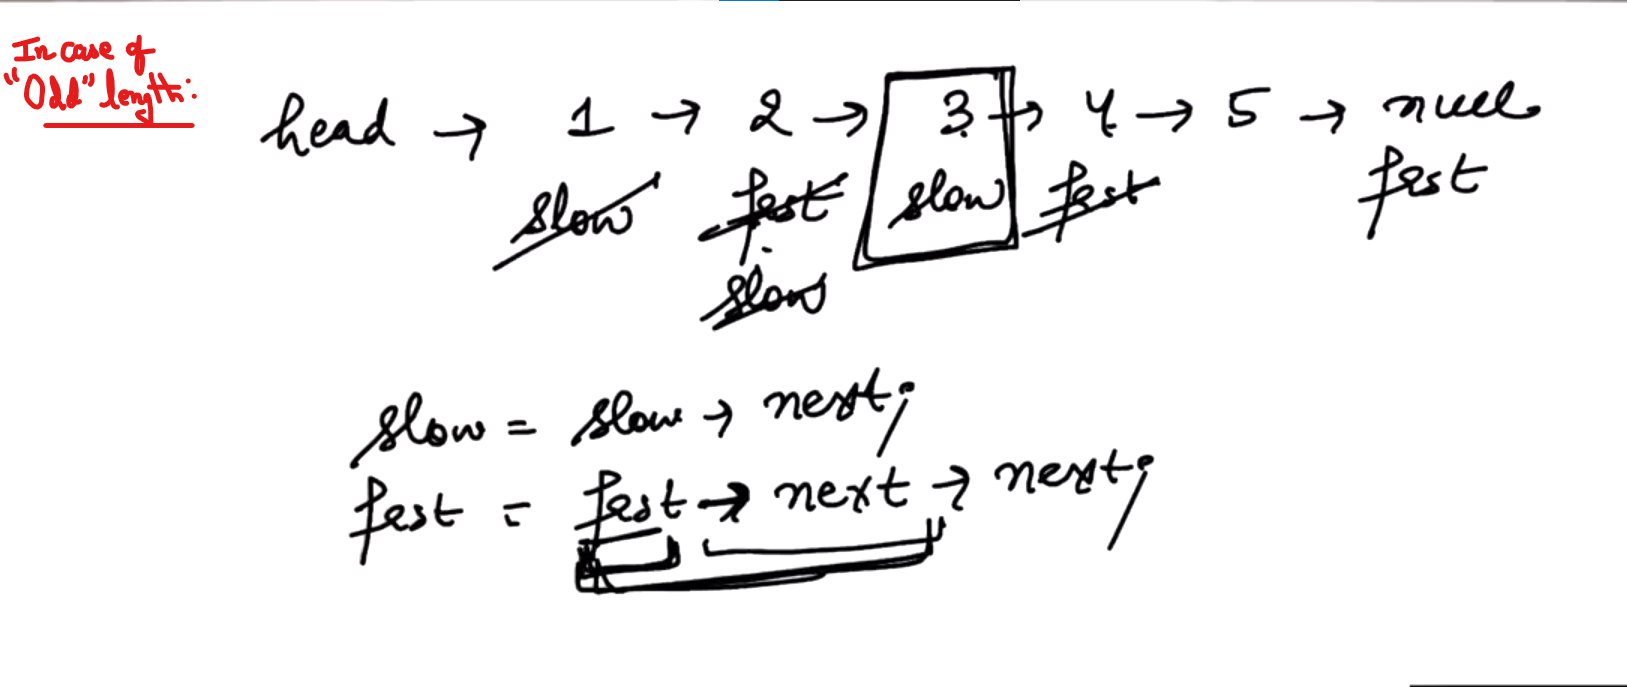 In case of
"Odd" length:
head → 1 → 2 → 3 → 4 → 5 → null
slow fast slow fast fast
slow
slow = slow → next;
fast = fast → next → next;